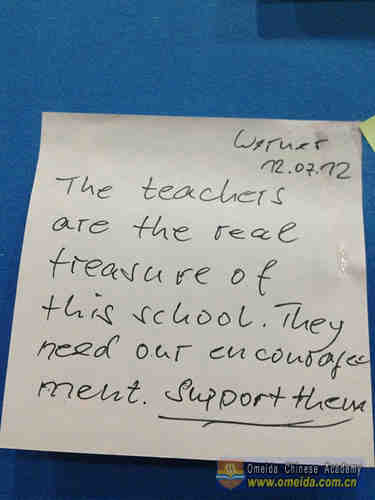 Werner
12.07.12
The teachers
are the real
treasure of
this school. They
need our encourage
ment. Support them
Omeida Chinese Academy
www.omeida.com.cn